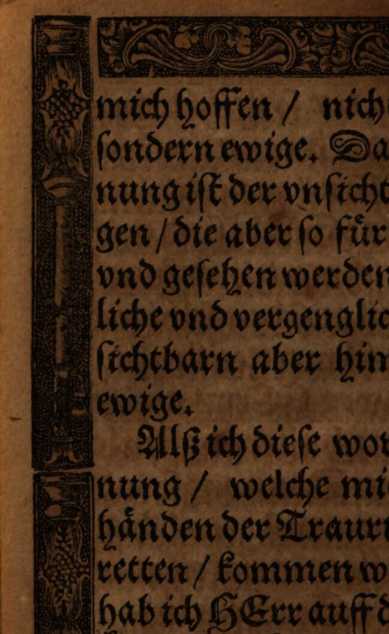 mich hoffen / nich
sondern ewige. Da
nung ist der vnsicht
gen / die aber so für
vnd gesehen werden
liche vnd vergenglic
sichtbarn aber him
ewige.
Alß ich diese wor
nung / welche mi
händen der Traur
retten / kommen w
hab ich HErr auff d